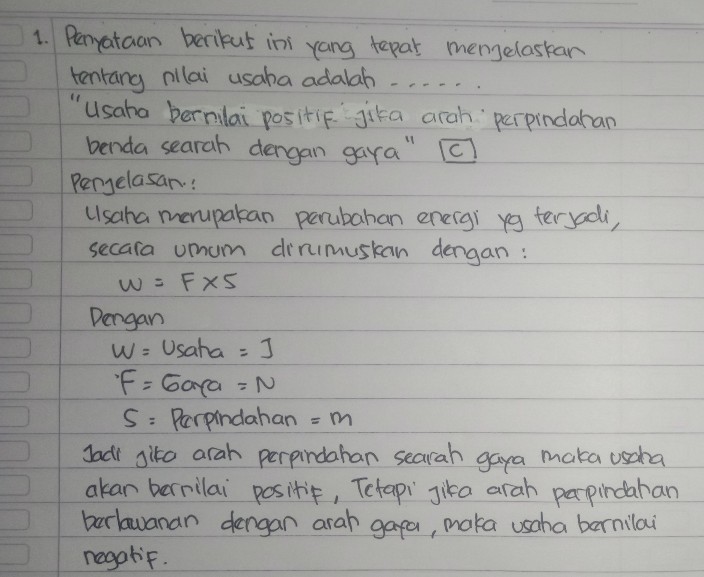 1. Penyataan berikut ini yang tepat menjelaskan
tentang nilai usaha adalah ......
"Usaha bernilai positif jika arah perpindahan
benda searah dengan gaya" C
Penjelasan:
Usaha merupakan perubahan energi yg terjadi,
secara umum dirumuskan dengan:
W = F x S
Dengan
W = Usaha = J
F = Gaya = N
S = Perpindahan = m
Jadi jika arah perpindahan searah gaya maka usaha
akan bernilai positif, Tetapi jika arah perpindahan
berlawanan dengan arah gaya, maka usaha bernilai
negatif.